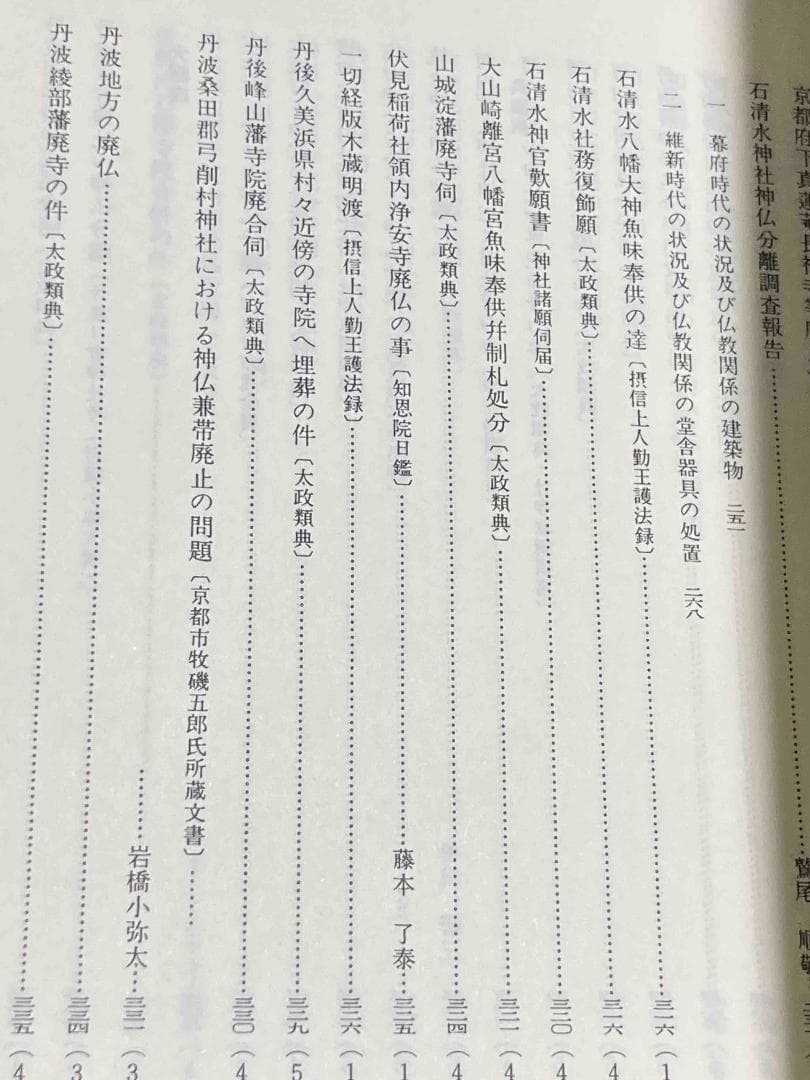 石清水神社神仏分離調査報告……
一　幕府時代の状況及び仏教関係の建築物　二五一
二　維新時代の状況及び仏教関係の堂舎器具の処置　二六八
石清水八幡大神魚味奉供の達〔摂信上人勤王護法録〕……三一六（1
石清水社務復飾願〔太政類典〕……三一六（4
石清水神官歎願書〔神社諸願伺届〕……三二〇（4
大山崎離宮八幡宮魚味奉供幷制札処分〔太政類典〕……三二一（4
山城淀藩廃寺伺〔太政類典〕……三二四（4
伏見稲荷社領内浄安寺廃仏の事〔知恩院日鑑〕……藤本　了泰…三二五（1
一切経版木蔵明渡〔摂信上人勤王護法録〕……三二六（1
丹後久美浜県村々近傍の寺院へ埋葬の件〔太政類典〕……三二九（5
丹後峰山藩寺院廃合伺〔太政類典〕……三三〇（4
丹波桑田郡弓削村神社における神仏兼帯廃止の問題〔京都市牧磯五郎氏所蔵文書〕……
……岩橋小弥太…三三一（3
丹波地方の廃仏……三三四（3
丹波綾部藩廃寺の件〔太政類典〕……三三五（4